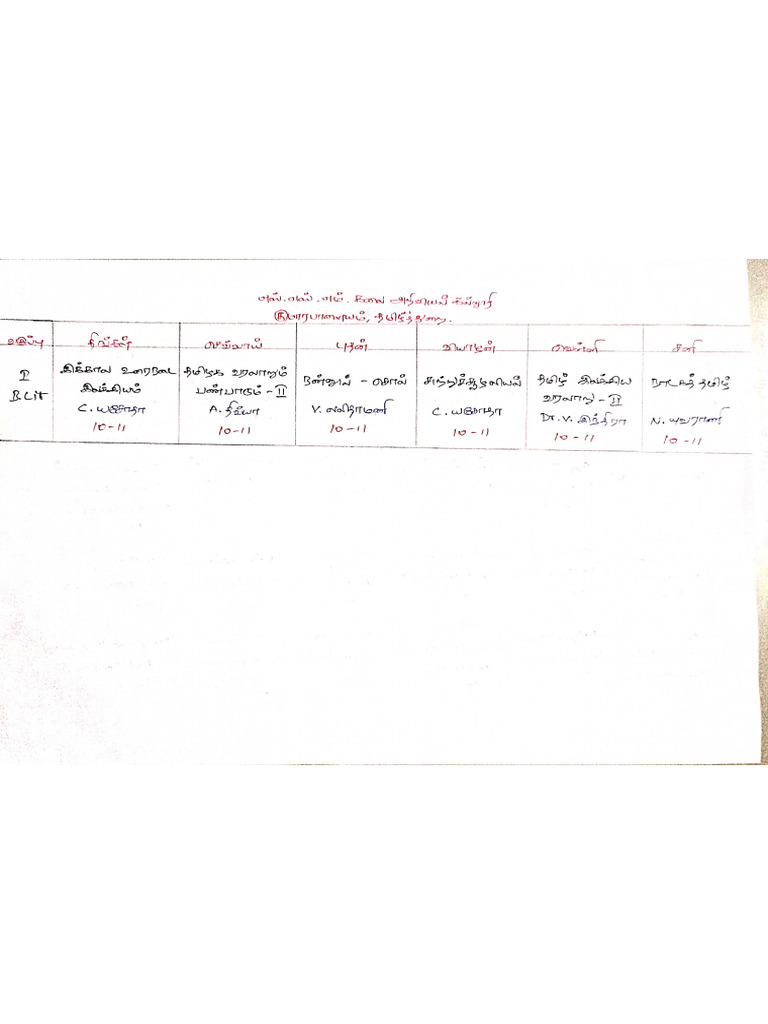 எஸ்.எஸ்.எம். கலை அறிவியல் கல்லூரி
குமாரபாளையம், தமிழ்த்துறை.
வகுப்பு திங்கள் செவ்வாய் புதன் வியாழன் வெள்ளி சனி
I இக்கால உரைநடை தமிழக வரலாறும் நன்னூல் - சொல் சுற்றுச்சூழலியல் தமிழ் இலக்கிய நாடகத்தமிழ்
B.Lit இலக்கியம் பண்பாடும் - II வரலாறு - II
C. யசோதா A. திவ்யா V. C. யசோதா Dr. V. இந்திரா N. யுவராணி
10-11 10-11 10-11 10-11 10-11 10-11